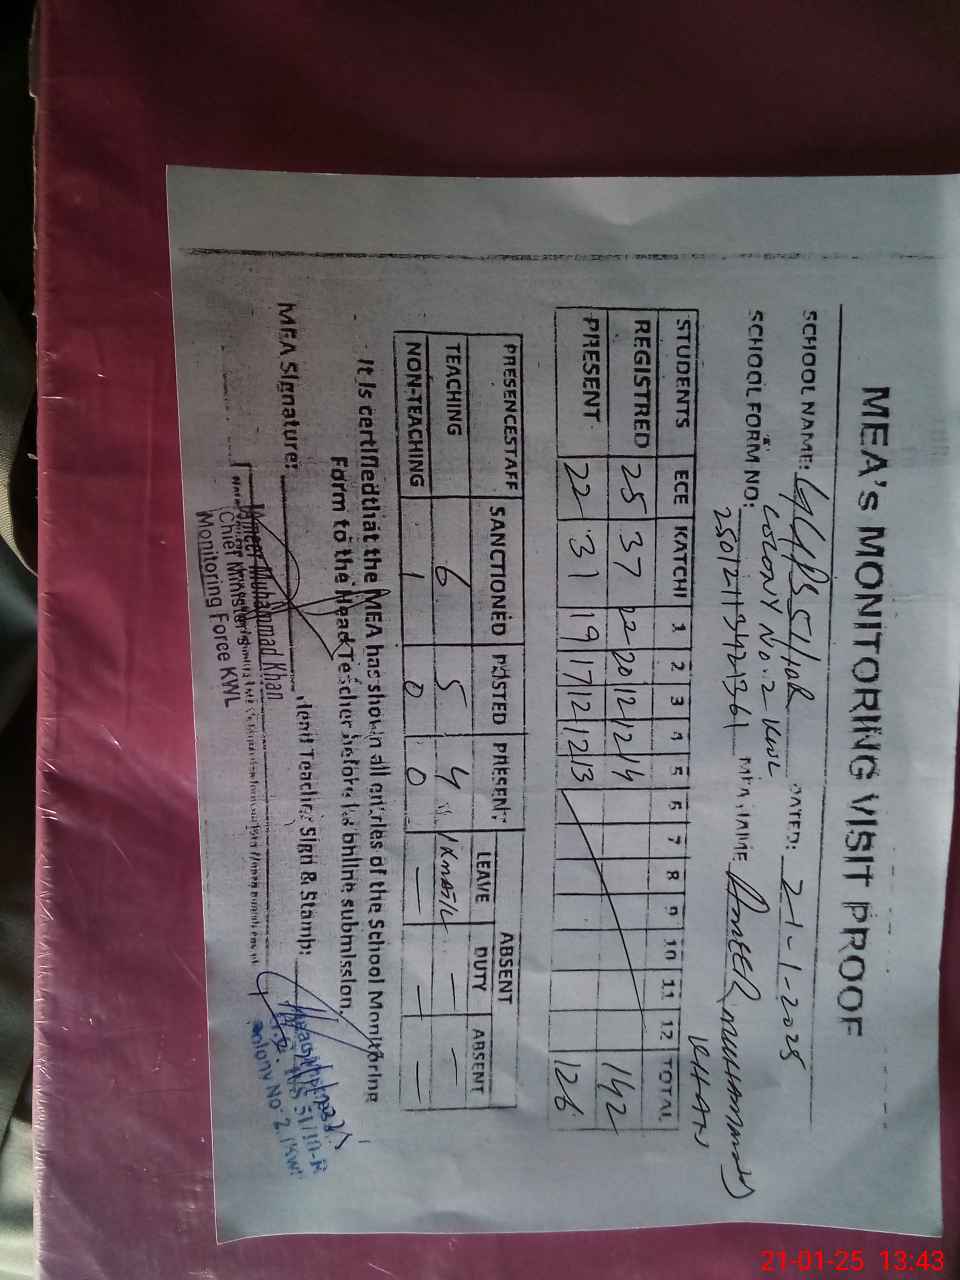 MEA's MONITORING VISIT PROOF
SCHOOL NAME: GGPS 51/10R DATED: 21-1-2025
COLONY No. 2 KWL
SCHOOL FORM NO: MEA NAME AMEER MUHAMMAD
KHAN
STUDENTS ECE KATCHI 1 2 3 4 5 6 7 8 9 10 11 12 TOTAL
REGISTRED 25 37 22 20 12 12 14 142
PRESENT 22 31 19 17 12 12 13 126
PRESENCESTAFF SANCTIONED POSTED PRESENT ABSENT
LEAVE DUTY ABSENT
TEACHING 6 5 4 1 — —
NON-TEACHING 1 0 0 — — —
It is certifiedthat the MEA has shown all entries of the School Monitoring
Form to the Head Teacher before his online submission.
MEA Signature: Head Teacher Sign & Stamp:
Ameer Muhammad Khan
Chief Minister's
Monitoring Force KWL
51/10-R
Colony No. 2, KWL
21-01-25 13:43